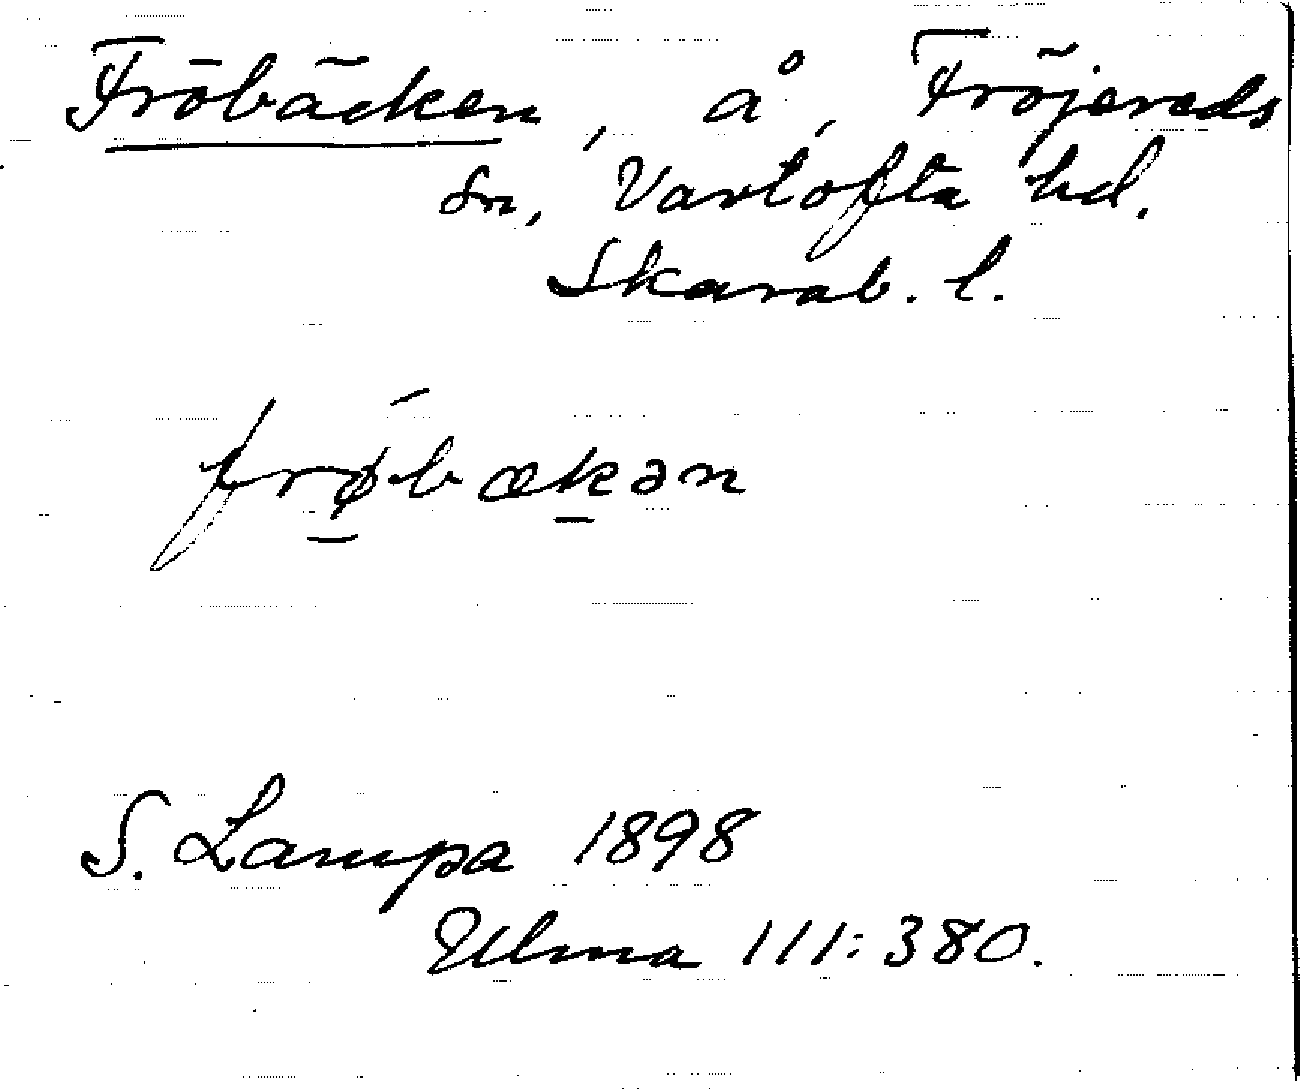 Fröbäcken, å, Fröjereds
sn, Vartofta hd.
Skarab. l.
frǿ̱bæḵən
S. Lampa 1898
Ulma 111:380.